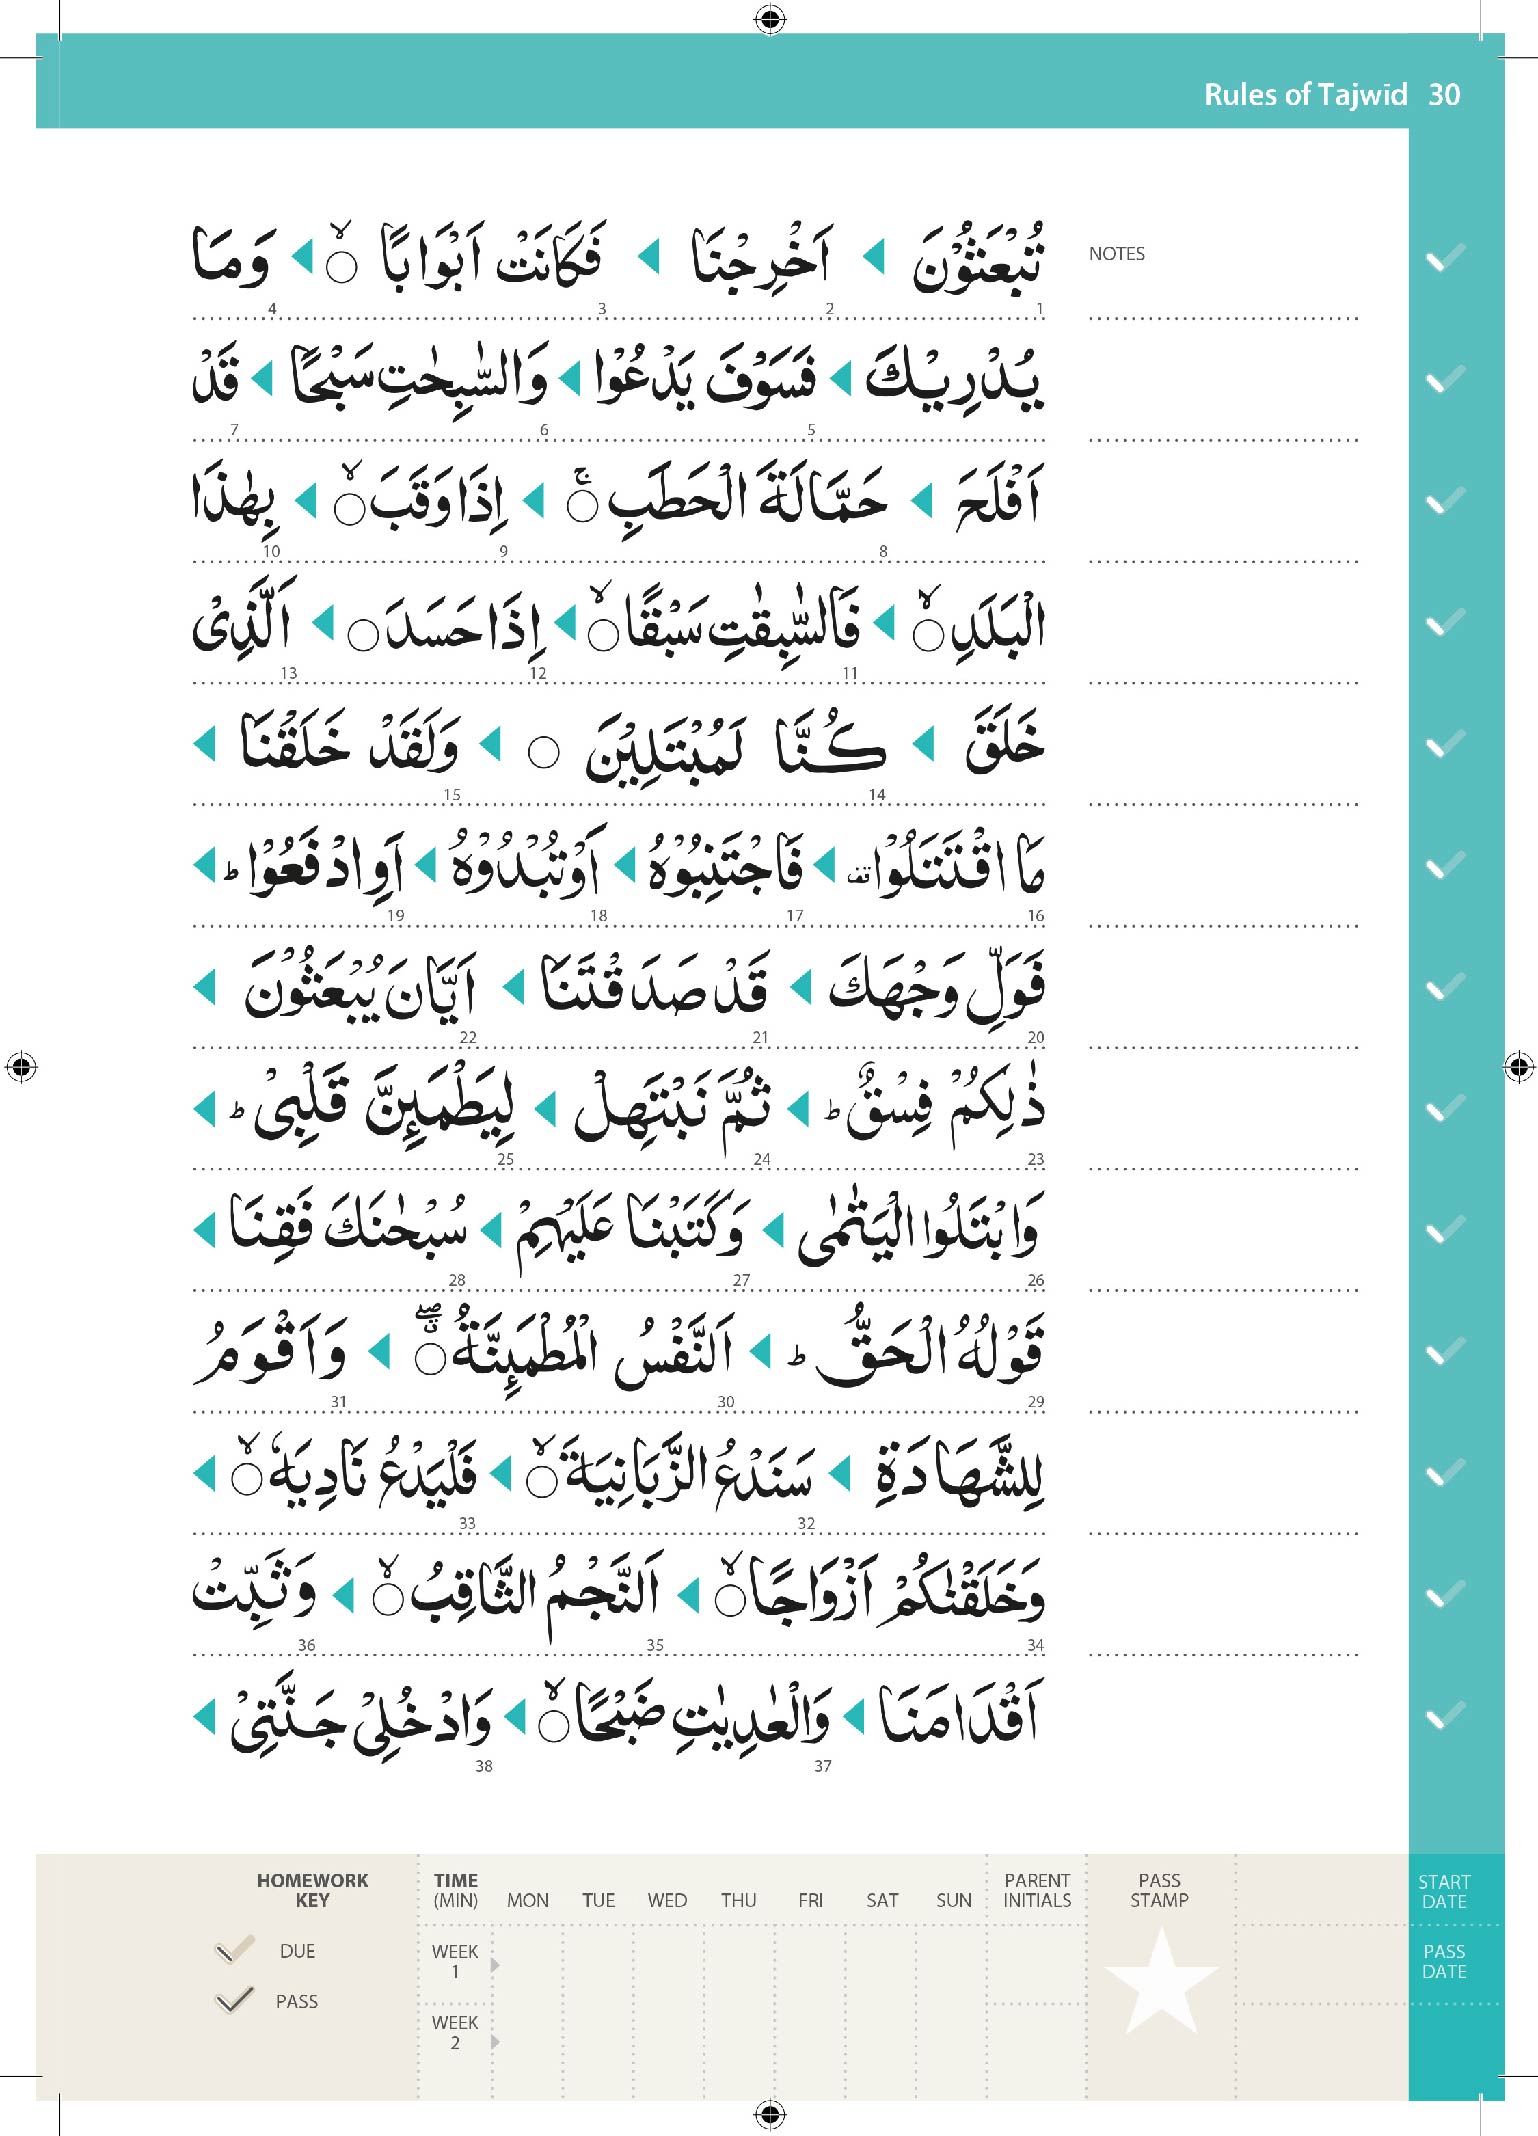 Rules of Tajwīd 30
NOTES
تُبْعَثُوْنَ ◀ اَخْرِجْنَا ◀ فَكَانَتْ اَبْوَابًا ۙ○ ◀ وَمَا
1 2 3 4
يُدْرِيْكَ ◀ فَسَوْفَ يَدْعُوْا ◀ وَالسّٰبِحٰتِ سَبْحًا ◀ قَدْ
5 6 7
اَفْلَحَ ◀ حَمَّالَةَ الْحَطَبِ ۚ○ ◀ اِذَا وَقَبَ ۙ○ ◀ بِهٰذَا
8 9 10
الْبَلَدِ ۙ○ ◀ فَالسّٰبِقٰتِ سَبْقًا ۙ○ ◀ اِذَا حَسَدَ ○ ◀ اَلَّذِیْ
11 12 13
خَلَقَ ◀ كُنَّا لَمُبْتَلِيْنَ ○ ◀ وَلَقَدْ خَلَقْنَا ◀
14 15
مَا اقْتَتَلُوْا قف ◀ فَاجْتَنِبُوْهُ ◀ اَوْ تُبْدُوْهُ ◀ اَوِ ادْفَعُوْا ؕ ◀
16 17 18 19
فَوَلِّ وَجْهَكَ ◀ قَدْ صَدَقْتَنَا ◀ اَيَّانَ يُبْعَثُوْنَ ◀
20 21 22
ذٰلِكُمْ فِسْقٌ ؕ ◀ ثُمَّ نَبْتَهِلْ ◀ لِيَطْمَئِنَّ قَلْبِیْ ؕ ◀
23 24 25
وَابْتَلُوا الْيَتٰمٰى ◀ وَكَتَبْنَا عَلَيْهِمْ ◀ سُبْحٰنَكَ فَقِنَا ◀
26 27 28
قَوْلُهُ الْحَقُّ ؕ ◀ اَلنَّفْسُ الْمُطْمَئِنَّةُ ۖ○ ◀ وَاَقْوَمُ
29 30 31
لِلشَّهَادَةِ ◀ سَنَدْعُ الزَّبَانِيَةَ ۙ○ ◀ فَلْيَدْعُ نَادِيَهٗ ۙ○ ◀
32 33
وَخَلَقْنٰكُمْ اَزْوَاجًا ۙ○ ◀ اَلنَّجْمُ الثَّاقِبُ ۙ○ ◀ وَثَبِّتْ
34 35 36
اَقْدَامَنَا ◀ وَالْعٰدِيٰتِ ضَبْحًا ۙ○ ◀ وَادْخُلِیْ جَنَّتِیْ ◀
37 38
HOMEWORK KEY
DUE
PASS
TIME (MIN) MON TUE WED THU FRI SAT SUN PARENT INITIALS PASS STAMP START DATE
WEEK 1
PASS DATE
WEEK 2